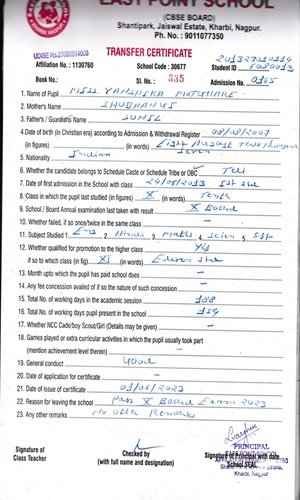 EAST POINT SCHOOL
(CBSE BOARD)
Shantipark, Jaiswal Estate, Kharbi, Nagpur.
Ph. No. : 9011077350
TRANSFER CERTIFICATE
Affiliation No. : 1130760 School Code : 30677 Student ID
Book No.: Sl. No. : 335 Admission No. : 0165
1. Name of Pupil Miss. Yanshka
2. Mother's Name
3. Fathers / Guardian's Name Sunil
4.Date of birth (in Christian era) according to Admission & Withdrawal Register 08/08/2007
(in figures) (in words) Eight August Two thousand
Seven
5. Nationality Indian
6. Whether the candidate belongs to Schedule Caste or Schedule Tribe or OBC Teli
7. Date of first admission in the School with class 24/06/2013 Ist std
8. Class in which the pupil last studied (in figures) X (in words) Tenth
9. School / Board Annual examination last taken with result X Board
10. Whether failed, if so once/twice in the same class —
11. Subject Studied 1. Eng 2. Hindi 3. Maths 4. Scien 5. SST
12. Whether qualified for promotion to the higher class Yes
if so to which class (in fig) XI (in words) Eleven Std
13. Month upto which the pupil has paid school dues —
14. Any fee concession availed of if so the nature of such concession —
15. Total No. of working days in the academic session 188
16. Total No. of working days pupil present in the school 154
17. Whether NCC Cade/boy Scout/Girl (Details may be given) —
18. Games played or extra curricular activities in which the pupil usually took part
(mention achievement level therein)
19. General conduct Good
20. Date of application for certificate —
21. Date of issue of certificate 01/06/2023
22. Reason for leaving the school Pass X Board Exam 2023
23. Any other remarks No other Remarks
Signature of
Class Teacher
Checked by
(with full name and designation)
PRINCIPAL
Signature of Principal with date
School SEAL
Kharbi, Nagpur